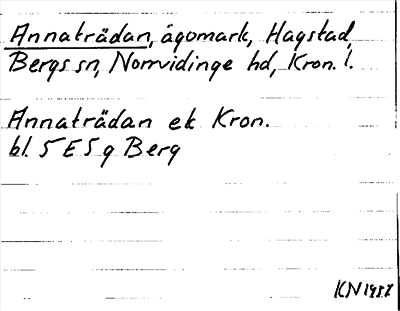 Annaträdan, ägomark, Hagstad,
Bergs sn, Norrvidinge hd, Kron. l.
Annaträdan ek Kron.
bl. 5 E 5 g Berg
KN 1958